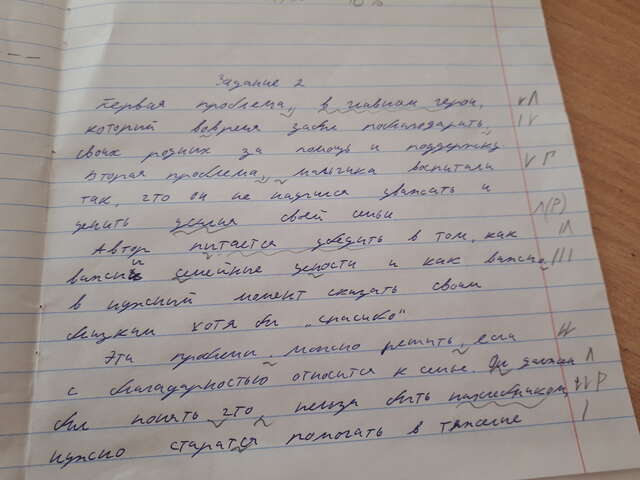 Задание 2
Первая проблема, в главном герои,
который вовремя забыл поблагодарить,
своих родных за помощь и поддержку
Вторая проблема, мальчика воспитали
так, что он не научился уважать и
ценить усилия своей семьи
Автор питается убедить в том, как
важны семейные цености и как важно
в нужный момент сказать своим
близким хотя бы „спасибо"
Эти проблемы, можно решить, если
с благодарностью относится к семье. Он должен
был понять что, нельзя быть
нужно старатся помогать в тяжелые